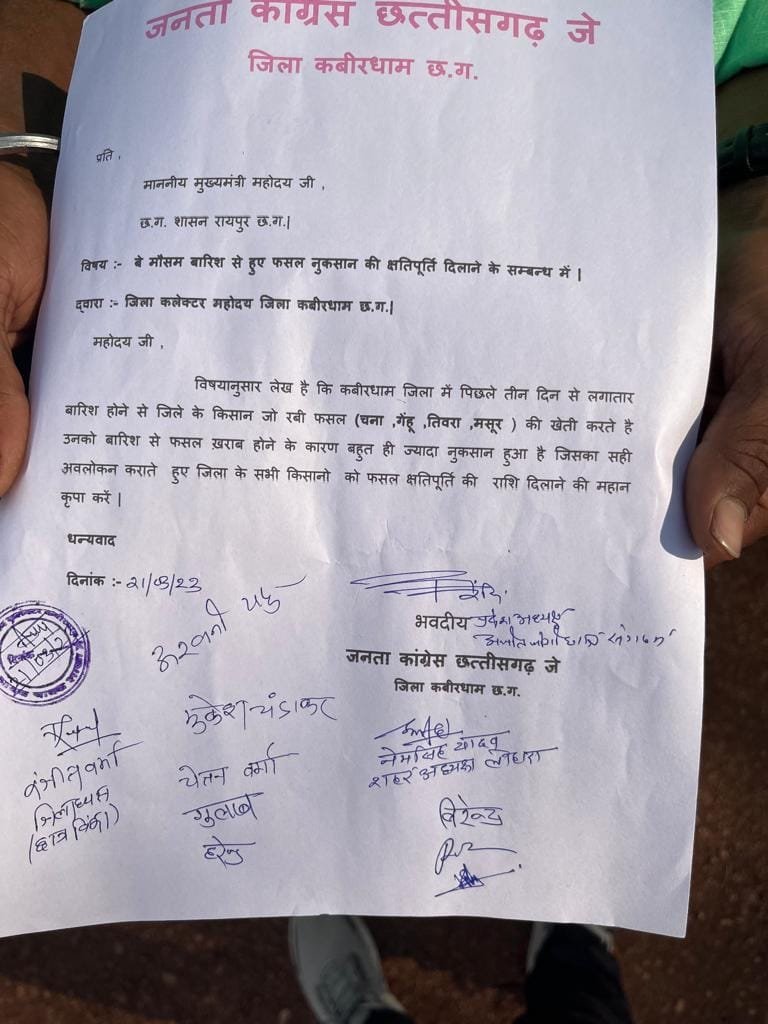 जनता कांग्रेस छत्तीसगढ़ जे
जिला कबीरधाम छ.ग.
प्रति ,
माननीय मुख्यमंत्री महोदय जी ,
छ.ग. शासन रायपुर छ.ग.|
विषय :- बे मौसम बारिश से हुए फसल नुकसान की क्षतिपूर्ति दिलाने के सम्बन्ध में |
द्वारा :- जिला कलेक्टर महोदय जिला कबीरधाम छ.ग.|
महोदय जी ,
विषयानुसार लेख है कि कबीरधाम जिला में पिछले तीन दिन से लगातार
बारिश होने से जिले के किसान जो रबी फसल (चना ,गेंहू ,तिवरा ,मसूर ) की खेती करते है
उनको बारिश से फसल ख़राब होने के कारण बहुत ही ज्यादा नुकसान हुआ है जिसका सही
अवलोकन कराते हुए जिला के सभी किसानो को फसल क्षतिपूर्ति की राशि दिलाने की महान
कृपा करें |
धन्यवाद
दिनांक :- 21/03/23
भवदीय प्रदेश अध्यक्ष
अजीत जोगी
जनता कांग्रेस छत्तीसगढ़ जे
जिला कबीरधाम छ.ग.
अश्वनी
मुकेश चंद्राकर
नेमसिंह यादव
शहर अध्यक्ष
वर्मा
जिलाध्यक्ष
(छात्र विंग)
चेतन वर्मा
गुलाब
हरेन्द्र
विरेन्द्र